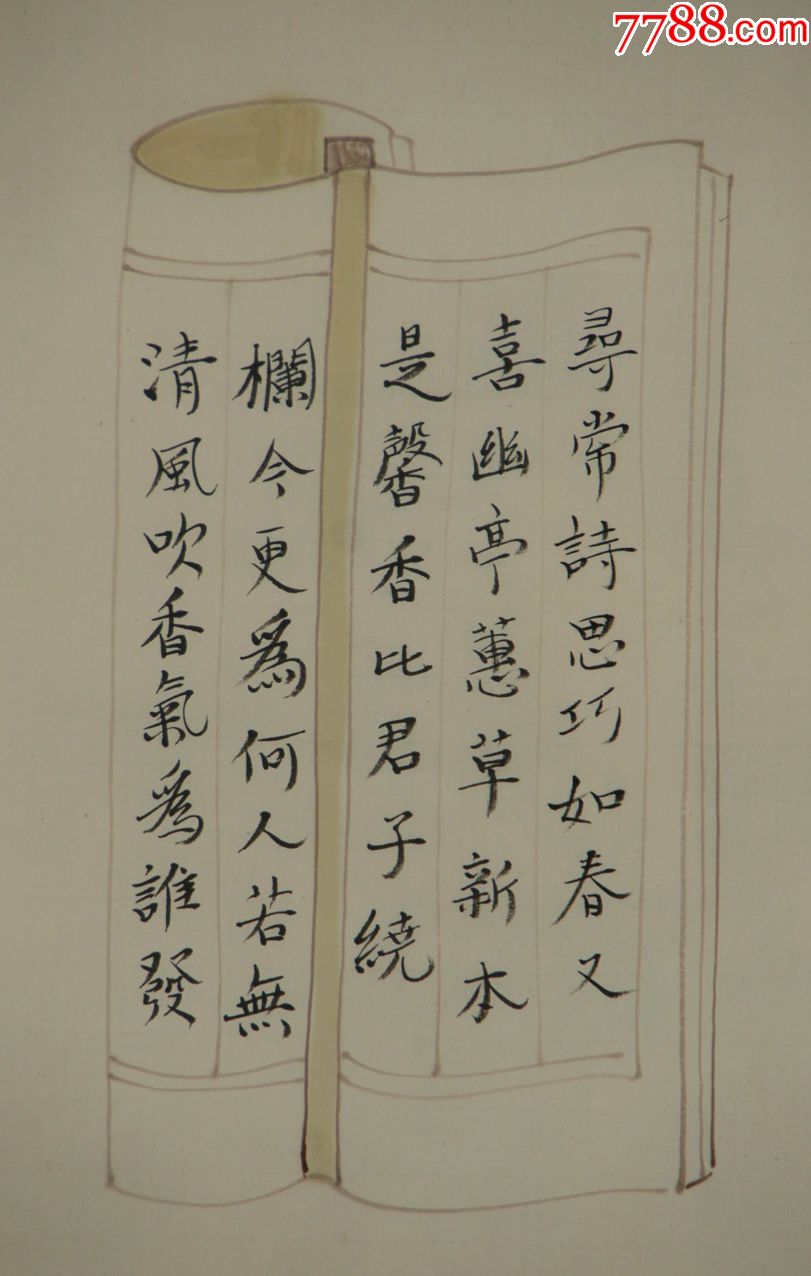 7788.com
尋常詩思巧如春又
喜幽亭蕙草新本
是馨香比君子繞
欄今更為何人若無
清風吹香氣為誰發